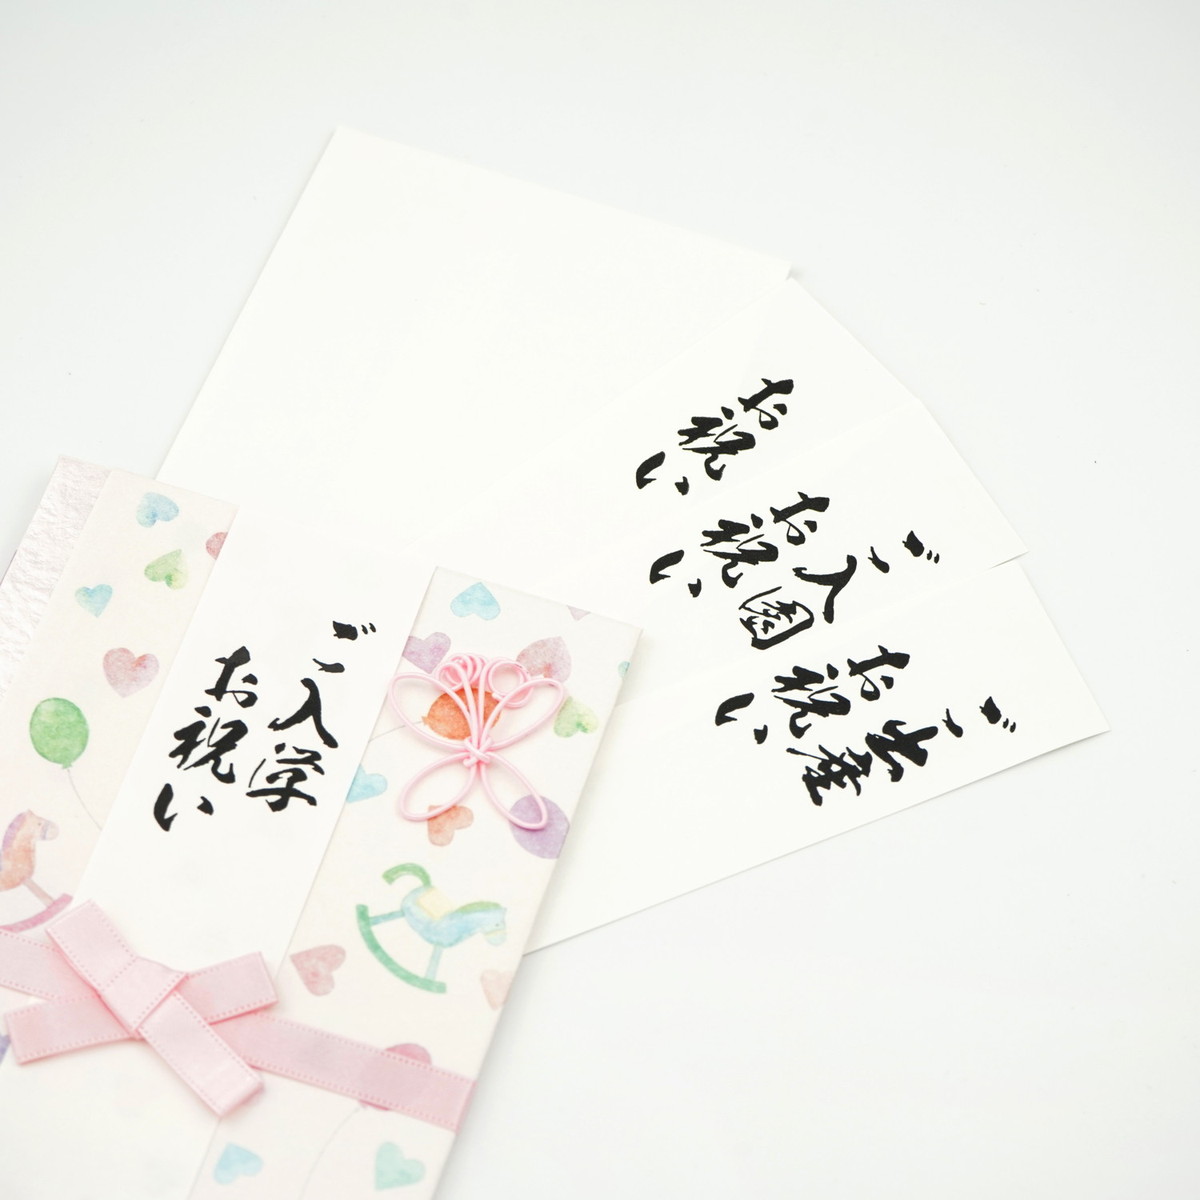 ご入学
お祝い
お祝い
ご入園
お祝い
ご出産
お祝い